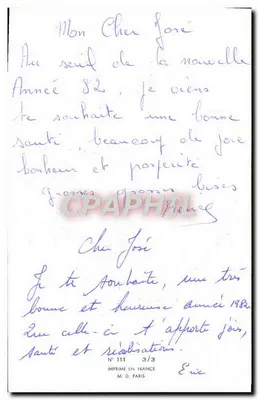 Mon Cher José
Au seuil de la nouvelle
Année 82, je viens
te souhaite une bonne
santé, beaucoup de joie
bonheur et posperité
grosses grosses bises
CPAPHIL
Cher José
Je te souhaite, une très
bonne et heureuse année 1982
Que celle-ci t'apporte joies,
santé et réalisations.
Eric
N° 111 3/3
IMPRIMÉ EN FRANCE
M. D. PARIS